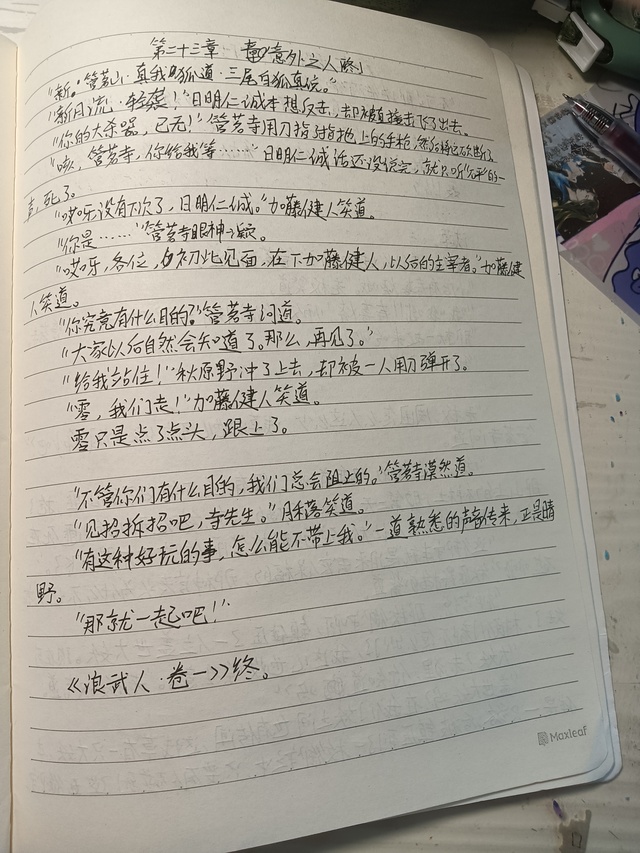 第二十三章 意外之人(终)
“新·管茗山·真我狐道·三尾白狐真伝。”
“新月流·轻燕!”日明仁诚本想反击,却被直接击飞了出去。
“你的大杀器,已无!”管茗寺用刀指指地上的手枪,然后将它砍断了。
“咳,管茗寺,你给我等……”日明仁诚话还没说完,就只听“砰”的一
声,死了。
“哎呀没有下次了,日明仁诚。”加藤健人笑道。
“你是……”管茗寺眼神一凝。
“哎呀,各位,初此见面,在下加藤健人,以后的主宰者。”加藤健
人笑道。
“你究竟有什么目的?”管茗寺问道。
“大家以后自然会知道了。那么,再见了。”
“给我站住!”秋原野冲了上去,却被一人用刀弹开了。
“零,我们走!”加藤健人笑道。
零只是点了点头,跟上了。
“不管你们有什么目的,我们总会阻止的。”管茗寺漠然道。
“见招拆招吧,寺先生。”月落笑道。
“有这种好玩的事,怎么能不带上我。”一道熟悉的声音传来,正是晴
野。
“那就一起吧!”
《浪武人·卷一》终。
Maxleaf